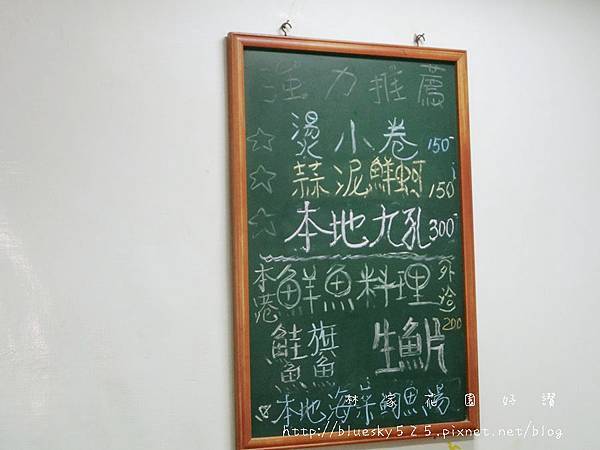 強力推薦
☆ 燙小卷 150-
☆ 蒜泥鮮蚵 150
☆ 本地九孔 300-
本港 鮮魚料理 外洽
鮭魚 旗魚 生魚片 200
本地海菜蚵魚湯
林家花園好讚
http://bluesky525.pixnet.net/blog